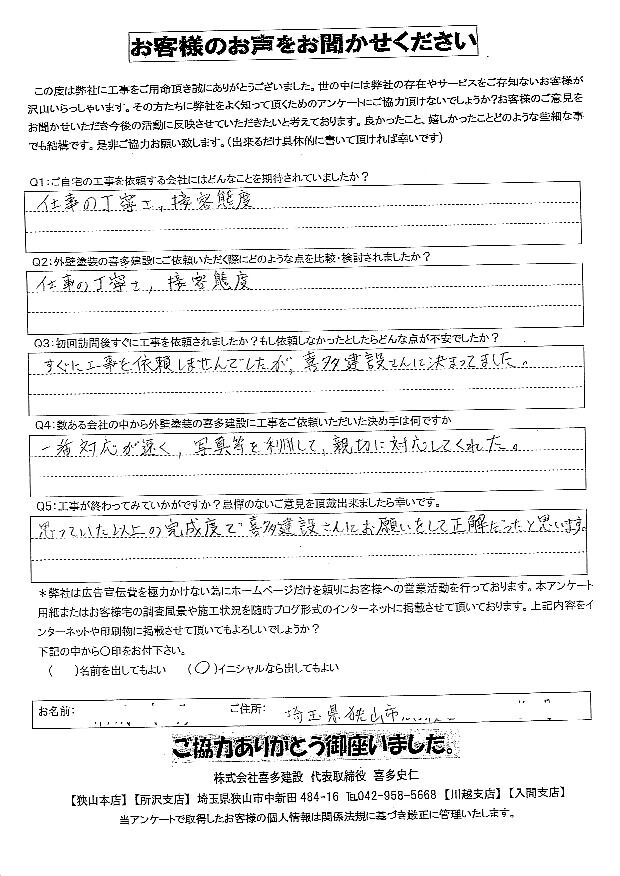 お客様のお声をお聞かせください
この度は弊社に工事をご用命頂き誠にありがとうございました。世の中には弊社の存在やサービスをご存知ないお客様が
沢山いらっしゃいます。その方たちに弊社をよく知って頂くためのアンケートにご協力頂けないでしょうか?お客様のご意見を
お聞かせいただき今後の活動に反映させていただきたいと考えております。良かったこと、嬉しかったことどのような些細な事
でも結構です。是非ご協力お願い致します。(出来るだけ具体的に書いて頂ければ幸いです)
Q1:ご自宅の工事を依頼する会社にはどんなことを期待されていましたか?
仕事の丁寧さ,接客態度
Q2:外壁塗装の喜多建設にご依頼いただく際にどのような点を比較・検討されましたか?
仕事の丁寧さ,接客態度
Q3:初回訪問後すぐに工事を依頼されましたか?もし依頼しなかったとしたらどんな点が不安でしたか?
すぐに工事を依頼しませんでしたが,喜多建設さんに決まってました。
Q4:数ある会社の中から外壁塗装の喜多建設に工事をご依頼いただいた決め手は何ですか
一番対応が速く,写真等を利用して,親切に対応してくれた。
Q5:工事が終わってみていかがですか?忌憚のないご意見を頂戴出来ましたら幸いです。
思っていた以上の完成度で喜多建設さんにお願いをして正解だったと思います。
*弊社は広告宣伝費を極力かけない為にホームページだけを頼りにお客様への営業活動を行っております。本アンケート
用紙またはお客様宅の調査風景や施工状況を随時ブログ形式のインターネットに掲載させて頂いております。上記内容をイ
ンターネットや印刷物に掲載させて頂いてもよろしいでしょうか?
下記の中から〇印をお付下さい。
( )名前を出してもよい (〇)イニシャルなら出してもよい
お名前: ご住所: 埼玉県狭山市
ご協力ありがとう御座いました。
株式会社喜多建設 代表取締役 喜多史仁
【狭山本店】【所沢支店】 埼玉県狭山市中新田484-16 ℡042-958-5668 【川越支店】【入間支店】
当アンケートで取得したお客様の個人情報は関係法規に基づき厳正に管理いたします。